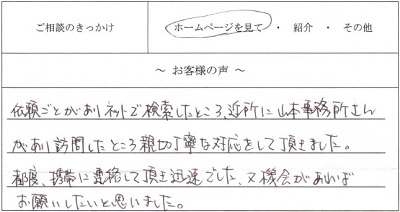 ご相談のきっかけ
ホームページを見て ・ 紹介 ・ その他
～ お客様の声 ～
依頼ごとがありネットで検索したところ、近所に山本事務所さん
があり訪問したところ親切丁寧な対応をして頂きました。
都度、携帯に連絡して頂き迅速でした。又機会があれば
お願いしたいと思いました。